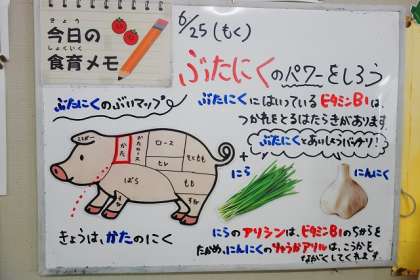 きょう
今日の
しょくいく
食育メモ
6/25(もく)
ぶたにくのパワーをしろう
ぶたにくのぶいマップ
ぶたにくにはいっているビタミンB1は、
つかれをとるはたらきがあります
ぶたにくとあいしょうバッチリ!
かた
ロース
ヒレ
ばら
もも
そともも
+
にら
にんにく
きょうは、かたのにく
にらのアリシンは、ビタミンB1のちからを
たかめ、にんにくのりゅうかアリルは、こうかを
ながくしてくれます。